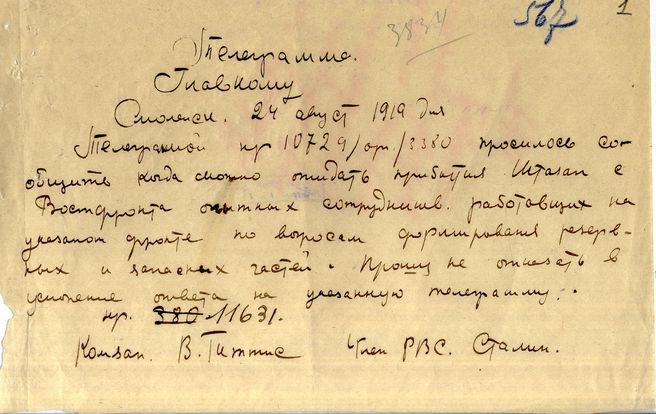 3834 567 1
Телеграмма.
Главкому
Смоленск. 24 август 1919 дня
Телеграммой нр 10729/оп/3380 просилось со-
общить когда можно ожидать прибытия Штазап с
Востфронта опытных сотрудников работавших на
указаном фронте по вопросам формирования резерв-
ных и запасных частей. Прошу не отказать в
ответа на указанную телеграмму.
нр. 380 11631.
Комзап. В. Гиттис Член РВС. Сталин.